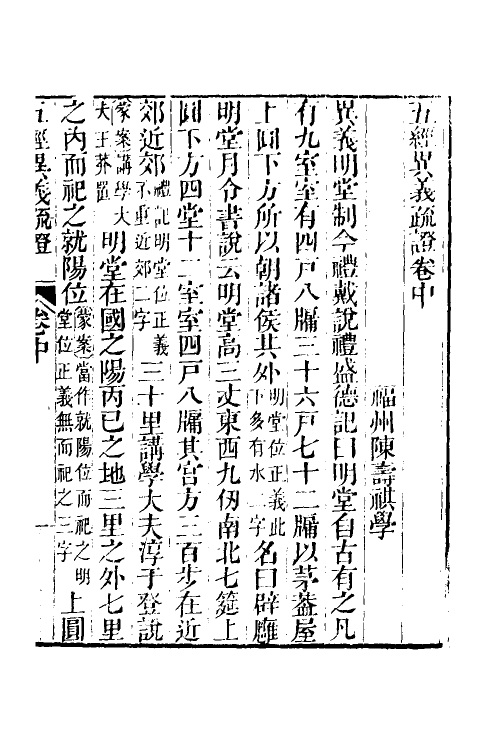 五經異義疏證卷中
福州陳壽祺學
異義明堂制今禮戴說禮盛德記曰明堂自古有之凡
有九室室有四戶八牖三十六戶七十二牖以茅葢屋
上圓下方所以朝諸侯其外明堂位正義此下多有水二字名曰辟廱
明堂月令書說云明堂高三丈東西九仞南北七筵上
圓下方四堂十二室室四戶八牖其宮方三百步在近
郊近郊禮記明堂位正義不重近郊二字三十里講學大夫淳于登說
蒙案講學大夫王莽置明堂在國之陽丙巳之地三里之外七里
之內而祀之就陽位蒙案當作就陽位而祀之明堂位正義無而祀之三字上圓
五經異義疏證
卷中
一